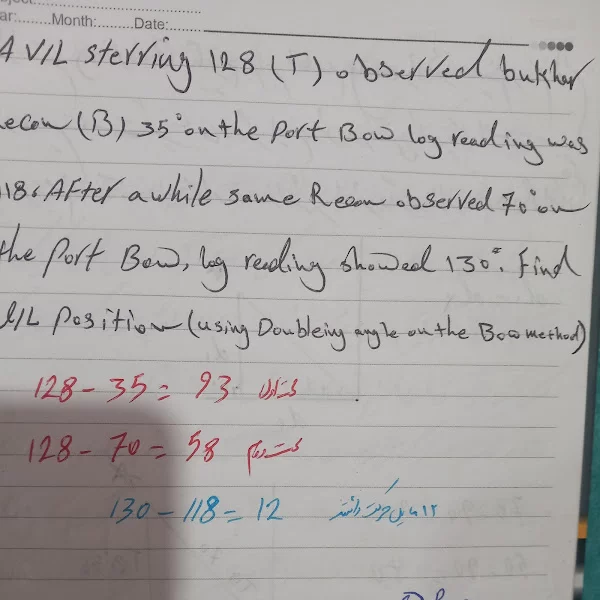 ar:........Month:.........Date:..........
A V/L sterring 128 (T) observed bukher
econ (B) 35° on the Port Bow log reading was
118. After a while same Recon observed 70° on
the Port Bow, log reading showed 130°. Find
V/L Position (using Doubleing angle on the Bow method)
128 - 35 = 93 سمت اول
128 - 70 = 58 سمت دوم
130 - 118 = 12 ۱۲ مایل حرکت داشتد